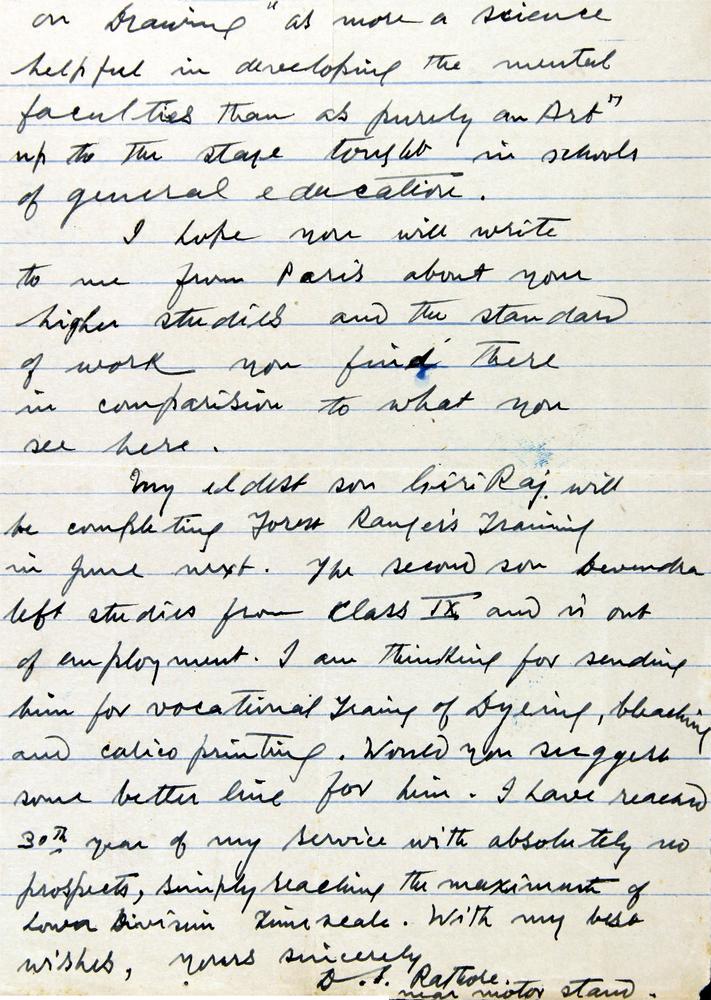 on Drawing "as more a science
helpful in developing the mental
faculties than as purely an Art"
up to the stage taught in schools
of general education.
I hope you will write
to me from Paris about your
higher studies and the standard
of work you find there
in comparision to what you
see here.
My eldest son Giri Raj will
be completing Forest Rangers Training
in June next. The second son Devendra
left studies from Class IX and is out
of employment. I am thinking for sending
him for vocational Traing of Dyeing, bleaching
and calico printing. Would you suggest
some better line for him. I have reached
30th year of my service with absolutely no
prospects, simply reaching the maximum of
Lower Division Timescale. With my best
wishes, yours sincerely
D. S. Rathore.
near motor stand.